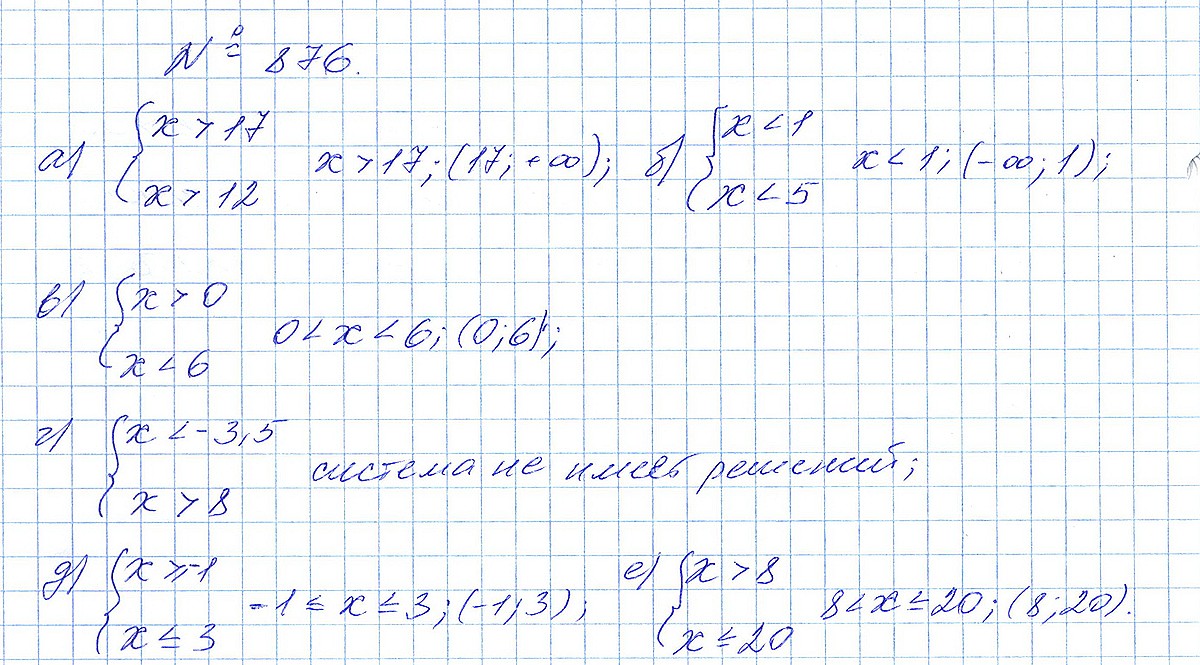 № 876.
а) { x > 17
x > 12 x > 17; (17; +∞); б) { x < 1
x < 5 x < 1; (-∞; 1);
в) { x > 0
x < 6 0 < x < 6; (0; 6);
г) { x < -3,5
x > 8 система не имееь решений;
д) { x ≥ -1
x ≤ 3 -1 ≤ x ≤ 3; (-1; 3); е) { x > 8
x ≤ 20 8 < x ≤ 20; (8; 20).